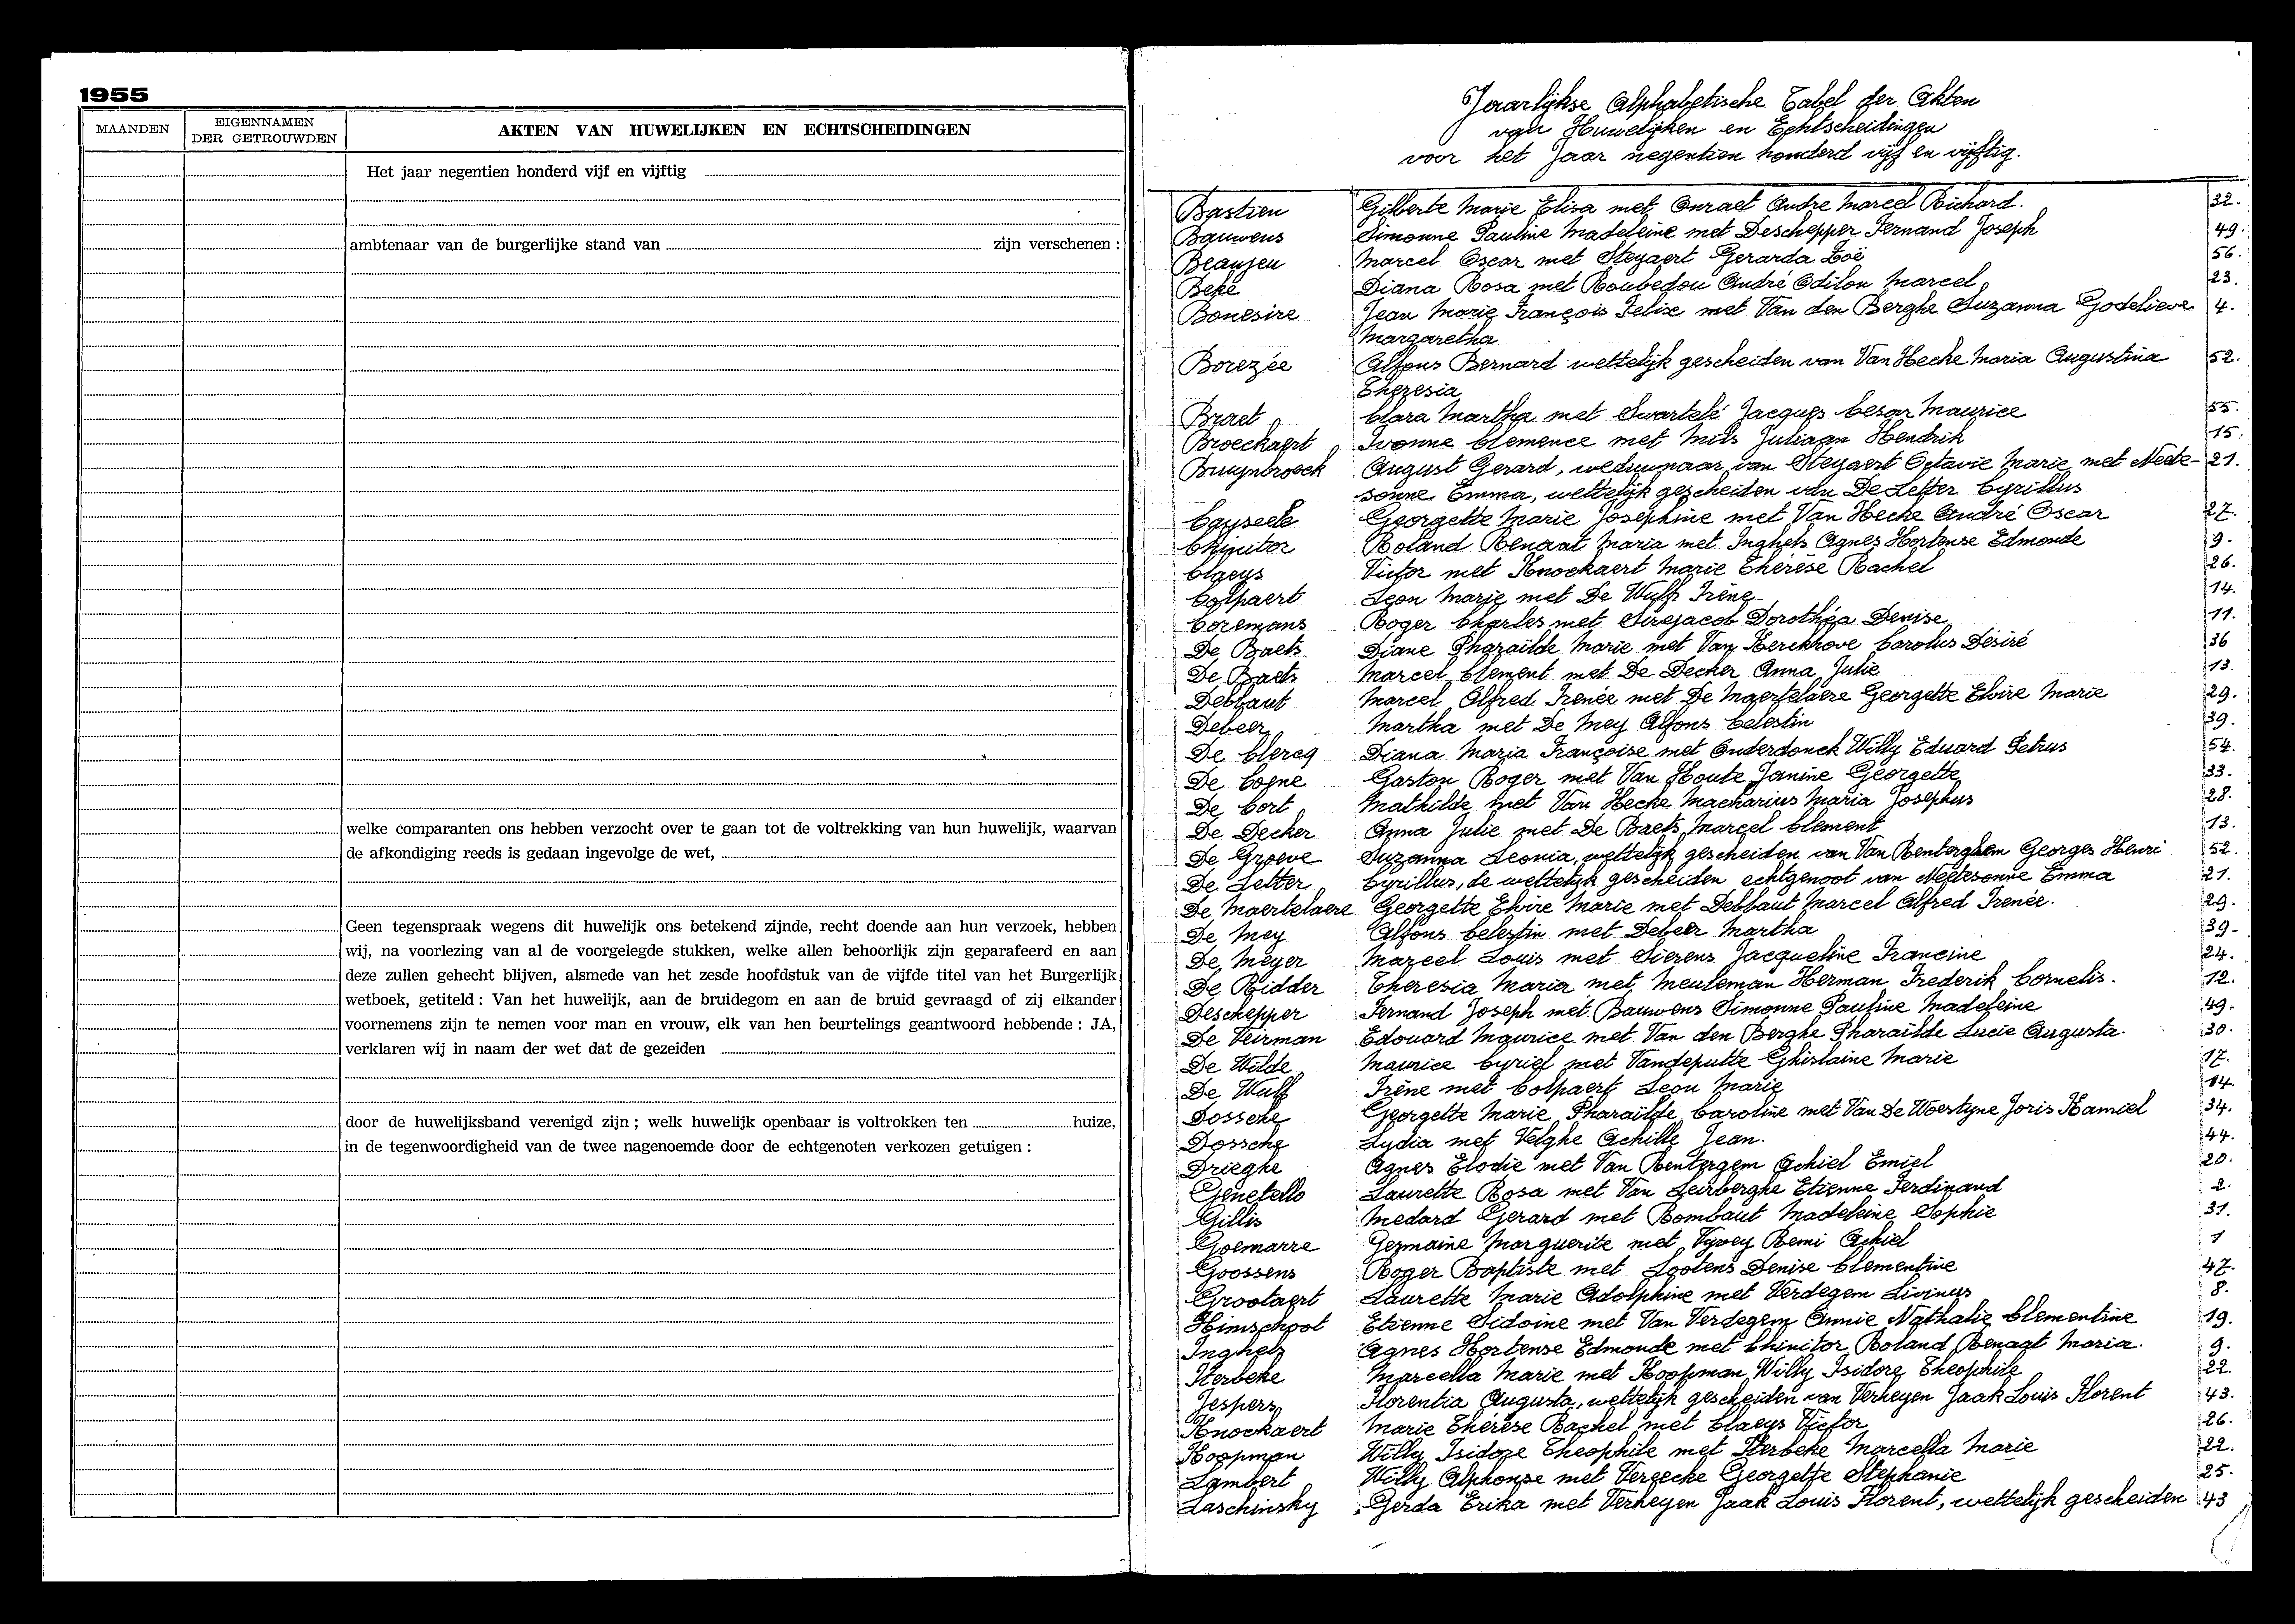 1955
MAANDEN
EIGENNAMEN
DER GETROUWDEN
AKTEN VAN HUWELIJKEN EN ECHTSCHEIDINGEN
Het jaar negentien honderd vijf en vijftig
ambtenaar van de burgerlijke stand van zijn verschenen :
welke comparanten ons hebben verzocht over te gaan tot de voltrekking van hun huwelijk, waarvan
de afkondiging reeds is gedaan ingevolge de wet,
Geen tegenspraak wegens dit huwelijk ons betekend zijnde, recht doende aan hun verzoek, hebben
wij, na voorlezing van al de voorgelegde stukken, welke allen behoorlijk zijn geparafeerd en aan
deze zullen gehecht blijven, alsmede van het zesde hoofdstuk van de vijfde titel van het Burgerlijk
wetboek, getiteld : Van het huwelijk, aan de bruidegom en aan de bruid gevraagd of zij elkander
voornemens zijn te nemen voor man en vrouw, elk van hen beurtelings geantwoord hebbende : JA,
verklaren wij in naam der wet dat de gezeiden
door de huwelijksband verenigd zijn ; welk huwelijk openbaar is voltrokken ten huize,
in de tegenwoordigheid van de twee nagenoemde door de echtgenoten verkozen getuigen :
Jaarlijkse Alphabetische Tabel der Akten
van Huwelijken en Echtscheidingen
voor het Jaar negentien honderd vijf en vijftig.
Bastien Gilberte Marie Elisa met Onraet Andre Marcel Richard. 32.
Bauwens Simonne Pauline Madeleine met Deschepper Fernand Joseph 49.
Beaujeu Marcel Oscar met Steyaert Gerarda Zoë 56.
Beke Diana Rosa met Roubedou André Odilon Marcel 23.
Bonesire Jean Marie François Felix met Van den Berghe Suzanna Godelieve 4.
Margaretha
Borezée Alfons Bernard wettelijk gescheiden van Van Hecke Maria Augustina 52.
Theresia
Braet Clara Martha met Swartelé Jacques Cesar Maurice 55.
Broeckaert Ivonne Clemence met Mils Juliaan Hendrik 15.
Bruynbroeck August Gerard, weduwnaar van Steyaert Octavie Marie met Neete- 21.
sonne Emma, wettelijk gescheiden van De Letter Cyrillus
Causeele Georgette Marie Joséphine met Van Hecke André Oscar 27.
Chinitor Roland Renaat Maria met Inghels Agnes Hortense Edmonde 9.
Claeys Victor met Knockaert Marie Thérèse Rachel 26.
Colpaert Leon Marie met De Wulf Irène 14.
Coremans Roger Charles met Sirejacob Dorothéa Denise 11.
De Baets Diane Pharaïlde Marie met Van Kerckhove Carolus Désiré 36
De Baets Marcel Clement met De Decker Anna Julie 13.
Debbaut Marcel Alfred Irenée met De Maertelaere Georgette Elvire Marie 29.
Debeer Martha met De Mey Alfons Celestin 39.
De Clercq Diana Maria Françoise met Onderdonck Willy Eduard Petrus 54.
De Cogne Gaston Roger met Van Houte Janine Georgette 33.
De Cort Mathilde met Van Hecke Macharius Maria Josephus 28.
De Decker Anna Julie met De Baets Marcel Clement 13.
De Groeve Suzanna Leonia, wettelijk gescheiden van Van Renterghem Georges Henri 52.
De Letter Cyrillus, de wettelijk gescheiden echtgenoot van Neetesonne Emma 21.
De Maertelaere Georgette Elvire Marie met Debbaut Marcel Alfred Irenée. 29.
De Mey Alfons Celestin met Debeer Martha 39.
De Meyer Marcel Louis met Sierens Jacqueline Francine 24.
De Ridder Theresia Maria met Meuleman Herman Frederik Cornelis. 12.
Deschepper Fernand Joseph met Bauwens Simonne Pauline Madeleine 49.
De Veirman Edouard Maurice met Van den Berghe Pharaïlde Lucie Augusta. 30.
De Wilde Maurice Cyriel met Vandeputte Ghislaine Marie 17.
De Wulf Irène met Colpaert Leon Marie 14.
Dossche Georgette Marie Pharaïlde Caroline met Van De Woestyne Joris Kamiel 34.
Dossche Lydia met Velghe Achille Jean. 44.
Drieghe Agnes Elodie met Van Rentergem Achiel Emiel 20.
Genetello Laurette Rosa met Van Leirberghe Etienne Ferdinand 2.
Gillis Medard Gerard met Bombaut Madeleine Sophie 31.
Goemarre Germaine Marguerite met Vyvey Remi Achiel 1
Goossens Roger Baptiste met Lootens Denise Clementine 47.
Grootaert Laurette Marie Adolphine met Verdegem Livinus 8.
Himschoot Etienne Sidoine met Van Verdegem Annie Nathalie Clementine 19.
Inghels Agnes Hortense Edmonde met Chinitor Roland Renaat Maria. 9.
Iterbeke Marcella Marie met Koopman Willy Isidore Theophile 22.
Jespers Florentia Augusta, wettelijk gescheiden van Verheyen Jaak Louis Florent 43.
Knockaert Marie Thérèse Rachel met Claeys Victor 26.
Koopman Willy Isidore Theophile met Iterbeke Marcella Marie 22.
Lambert Willy Alphonse met Vereecke Georgette Stephanie 25.
Laschinsky Gerda Erika met Verheyen Jaak Louis Florent, wettelijk gescheiden 43